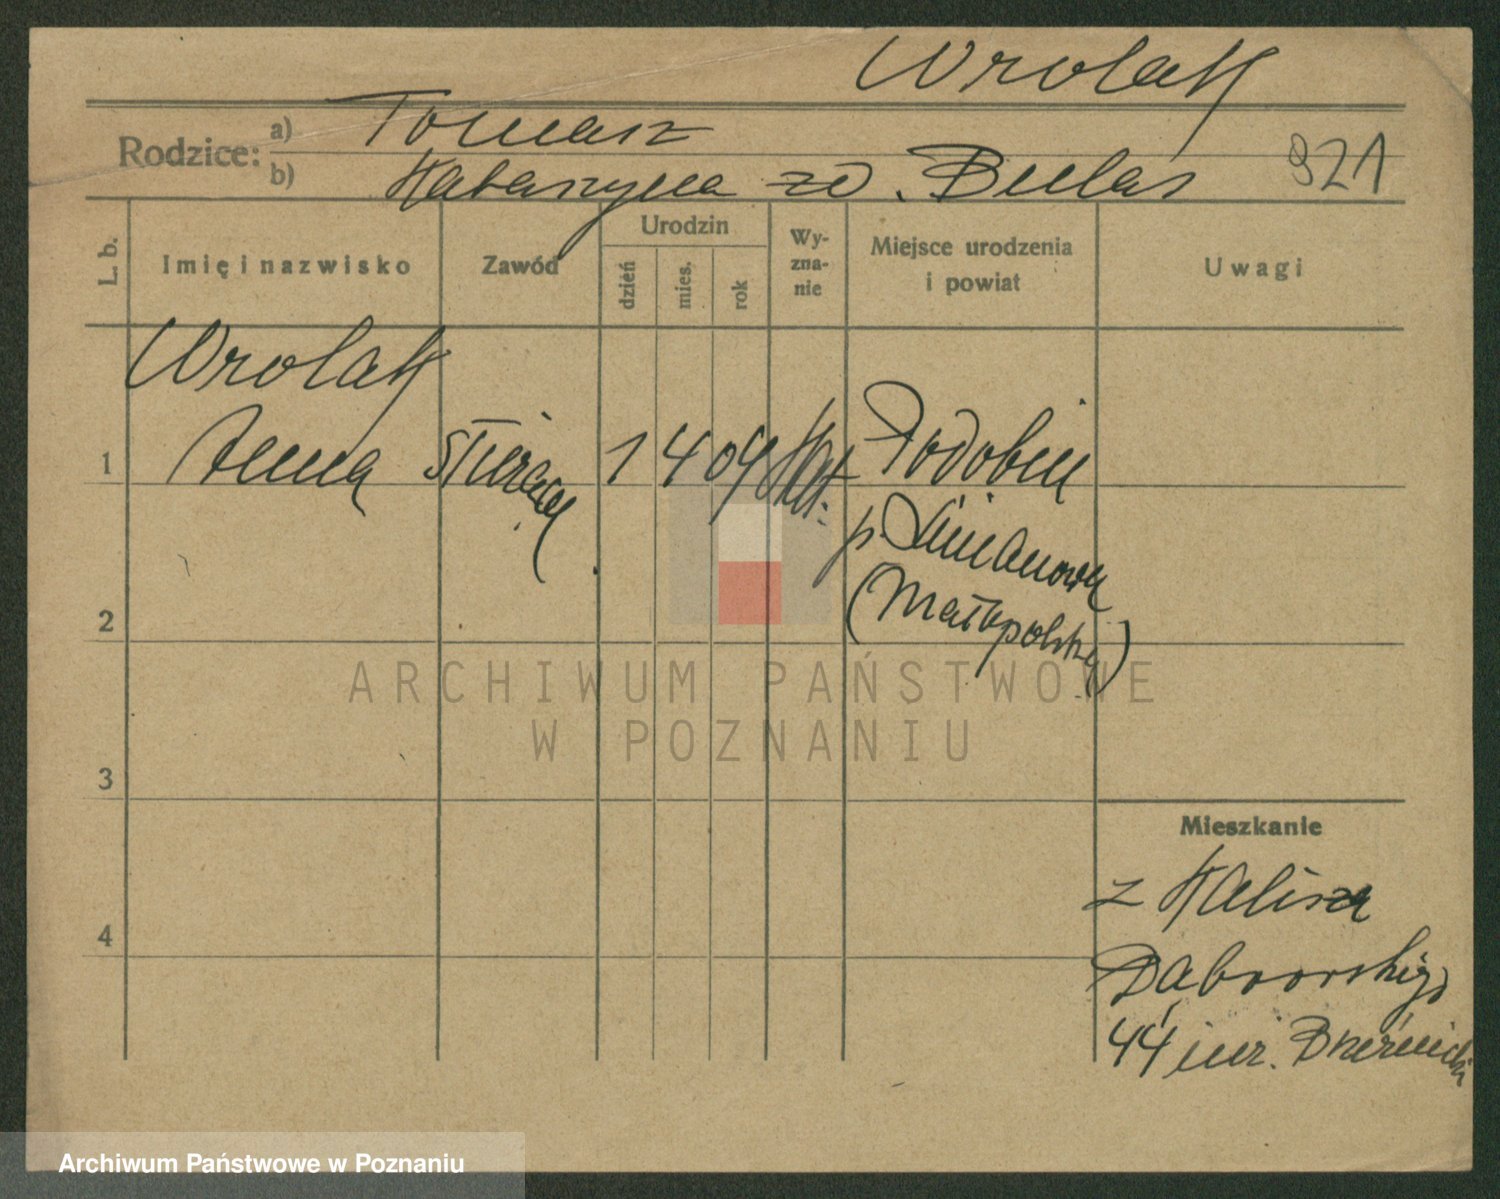 Wrolak
Rodzice:
a) Tomasz
b) Katarzyna zd. Bulas
921
L. b.
Imię i nazwisko
Zawód
Urodzin
dzień
mies.
rok
Wy-
zna-
nie
Miejsce urodzenia
i powiat
Uwagi
Wrolak
1 Anna służąca 1 4 09 kat. Podobin
p. Limanowa
(Małopolska)
2
3
4
ARCHIWUM PAŃSTWOWE
W POZNANIU
Mieszkanie
z Kalisza
Dąbrowskiego
44 inż.
Archiwum Państwowe w Poznaniu